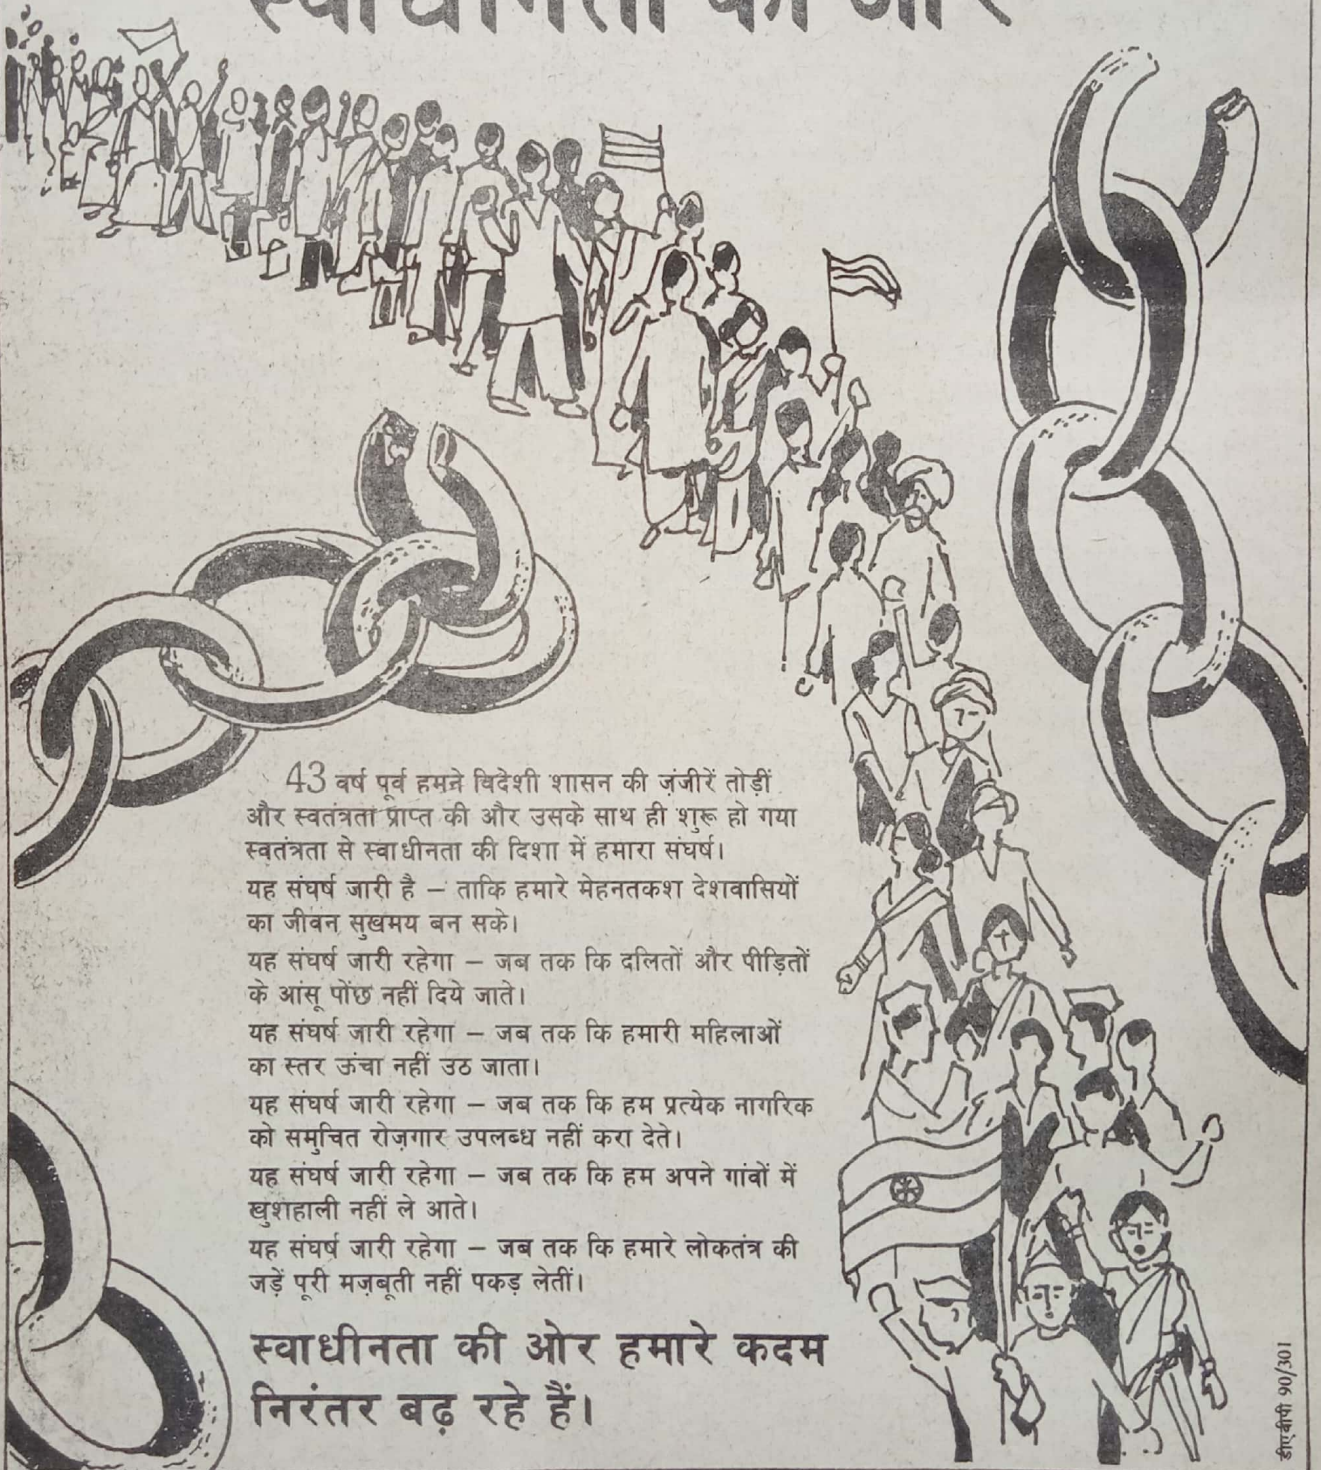 स्वाधीनता की ओर
43 वर्ष पूर्व हमने विदेशी शासन की ज़ंजीरें तोड़ीं
और स्वतंत्रता प्राप्त की और उसके साथ ही शुरू हो गया
स्वतंत्रता से स्वाधीनता की दिशा में हमारा संघर्ष।
यह संघर्ष जारी है – ताकि हमारे मेहनतकश देशवासियों
का जीवन सुखमय बन सके।
यह संघर्ष जारी रहेगा – जब तक कि दलितों और पीड़ितों
के आंसू पोंछ नहीं दिये जाते।
यह संघर्ष जारी रहेगा – जब तक कि हमारी महिलाओं
का स्तर ऊंचा नहीं उठ जाता।
यह संघर्ष जारी रहेगा – जब तक कि हम प्रत्येक नागरिक
को समुचित रोज़गार उपलब्ध नहीं करा देते।
यह संघर्ष जारी रहेगा – जब तक कि हम अपने गांवों में
खुशहाली नहीं ले आते।
यह संघर्ष जारी रहेगा – जब तक कि हमारे लोकतंत्र की
जड़ें पूरी मज़बूती नहीं पकड़ लेतीं।
स्वाधीनता की ओर हमारे कदम
निरंतर बढ़ रहे हैं।
डीएवीपी 90/301